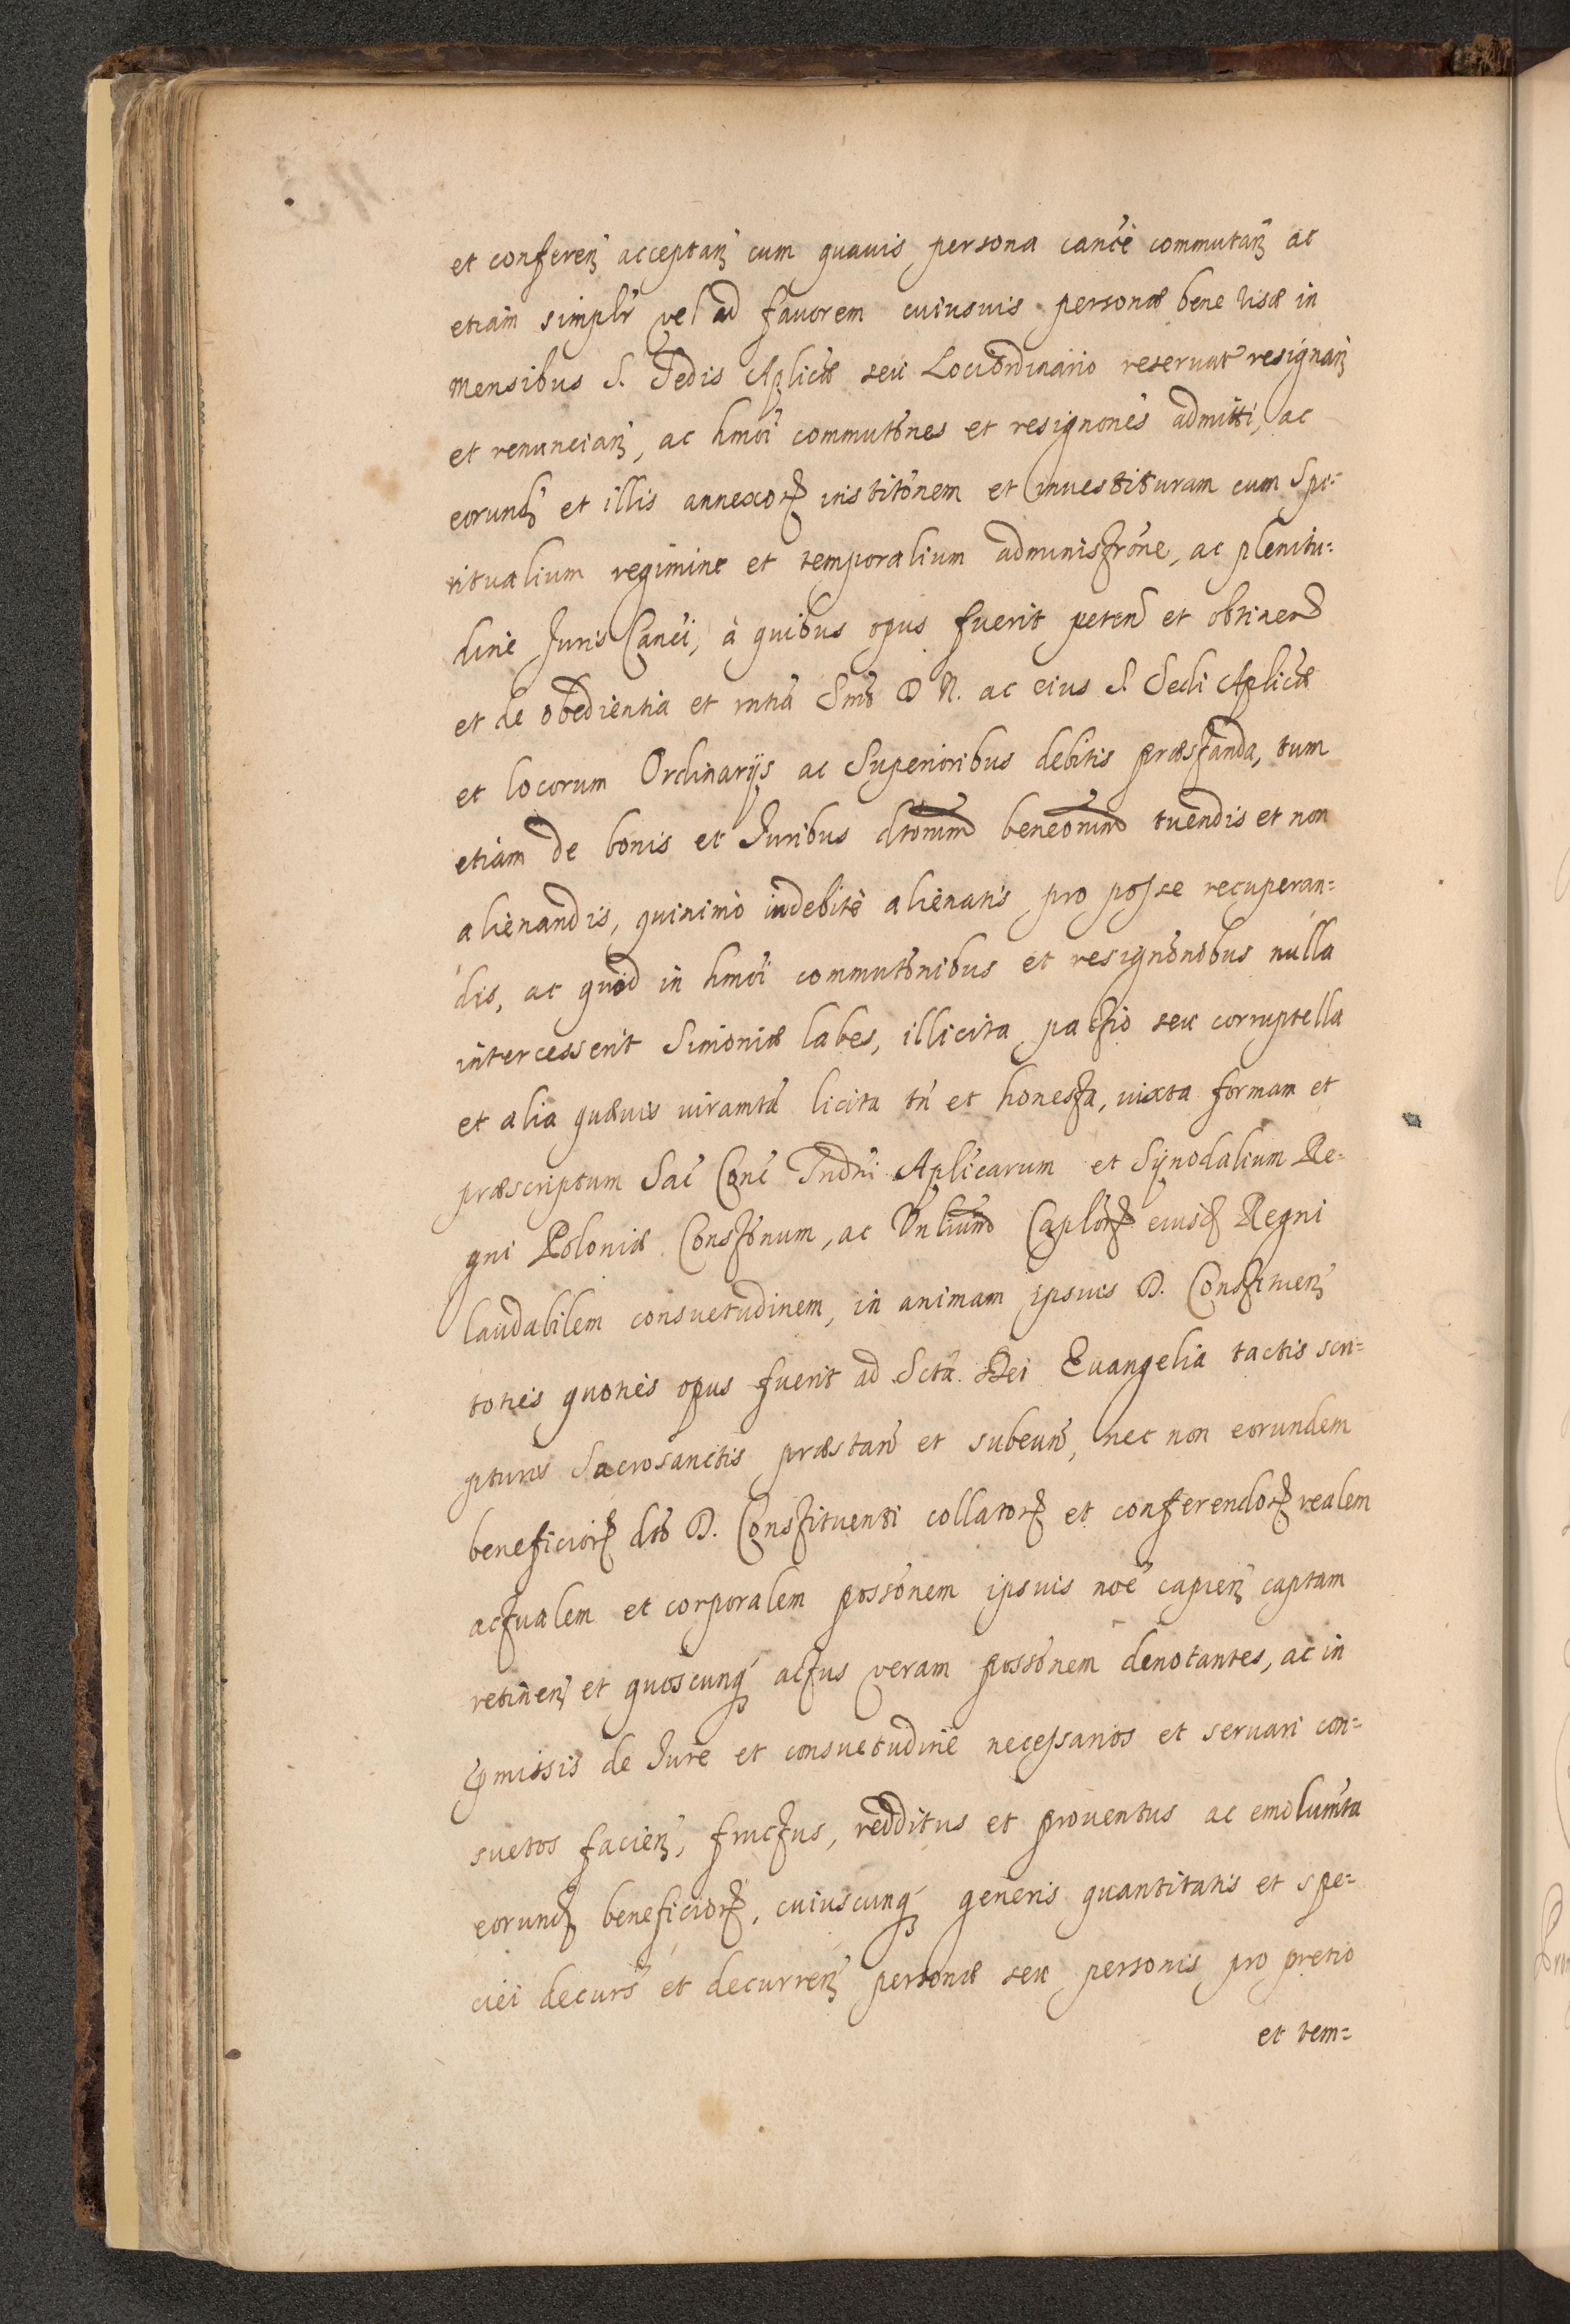 et conferen̄ acceptan̄ cum quavis persona canc̄e commutan̄ ac
etiam simplr̄ vel ad favorem cuiusvis personæ bene visæ in
mensibus S. Sedis Aplicæ seu Loci Ordinario reservat resignan̄
et renuncian̄, ac hmōi commutōnes et resignōnes admitti, ac
eorund̄ et illis annexorꝝ institōnem et investituram cum Spi=
ritualium regimine et temporalium administrōne, ac plenitu=
dine Juris Canc̄i, à quibus opus fuerit peten̄ et obtinen̄
et de obedientia et rntiā Smō D N. ac eius S. Sedi Aplicæ
et locorum Ordinarijs ac Superioribus debitis præstanda, tum
etiam de bonis et Juribus dtorum beneorum tuendis et non
alienandis, quinimò indebitè alienatis pro posse recuperan=
dis, ac quòd in hmōi commutōnibus et resignōnobus nulla
intercesserit Simoniæ labes, illicita pactio seu corruptella
et alia quævis iuramtā licita tn̄ et honesta, iuxta formam et
præscriptum Sac̄ Conc̄ Trndn̄i Aplīcarum et Synodalium Re=
gni Poloniæ Constōnum, ac Vn̄lium Caplorꝝ eiusd̄ Regni
laudabilem consuetudinem, in animam ipsius D. Constituen̄
toties quoties opus fuerit ad Sctā Dei Evangelia tactis scri=
pturis Sacrosanctis præstan̄ et subeun̄, nec non eorundem
beneficiorꝝ dtō D. Constituenti collatorꝝ et conferendorꝝ realem
actualem et corporalem possōnem ipsius noē capien̄ captam
retinen̄ et quoscunq́ actus veram possōnem denotantes, ac in
p̄missis de Jure et consuetudine necessarios et servari con=
suetos facien̄, fructus, redditus et proventus ac emolumtā
eorund̄ beneficiorꝝ, cuiuscunq́ generis quantitatis et spe=
ciei decurs̄ et decurren̄ personæ seu personis pro pretio
et tem=